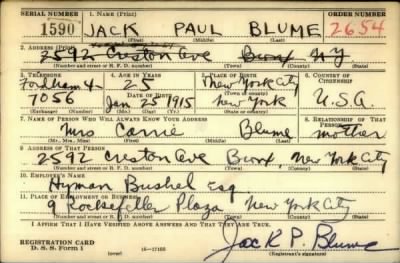 SERIAL NUMBER 1. NAME (Print) ORDER NUMBER
1590 JACK PAUL BLUME 2654
(First) (Middle) (Last)
2. ADDRESS (Print)
2592 Creston Ave Bronx NY
(Number and street or R. F. D. number) (Town) (County) (State)
3. TELEPHONE 4. AGE IN YEARS 5. PLACE OF BIRTH 6. COUNTRY OF CITIZENSHIP
Fordham 4- 25 New York City
DATE OF BIRTH (Town or county)
7056 Jan 25 1915 New York U.S.A.
(Exchange) (Number) (Mo.) (Day) (Yr.) (State or country)
7. NAME OF PERSON WHO WILL ALWAYS KNOW YOUR ADDRESS 8. RELATIONSHIP OF THAT PERSON
Mrs Carrie Blume mother
(Mr., Mrs., Miss) (First) (Middle) (Last)
9. ADDRESS OF THAT PERSON
2592 Creston Ave Bronx, New York City
(Number and street or R. F. D. number) (Town) (County) (State)
10. EMPLOYER'S NAME
Hyman Bushel Esq
11. PLACE OF EMPLOYMENT OR BUSINESS
9 Rockefeller Plaza New York City
(Number and street or R. F. D. number) (Town) (County) (State)
I AFFIRM THAT I HAVE VERIFIED ABOVE ANSWERS AND THAT THEY ARE TRUE.
REGISTRATION CARD
D. S. S. Form 1 16-17105 Jack P. Blume
(Registrant's signature)